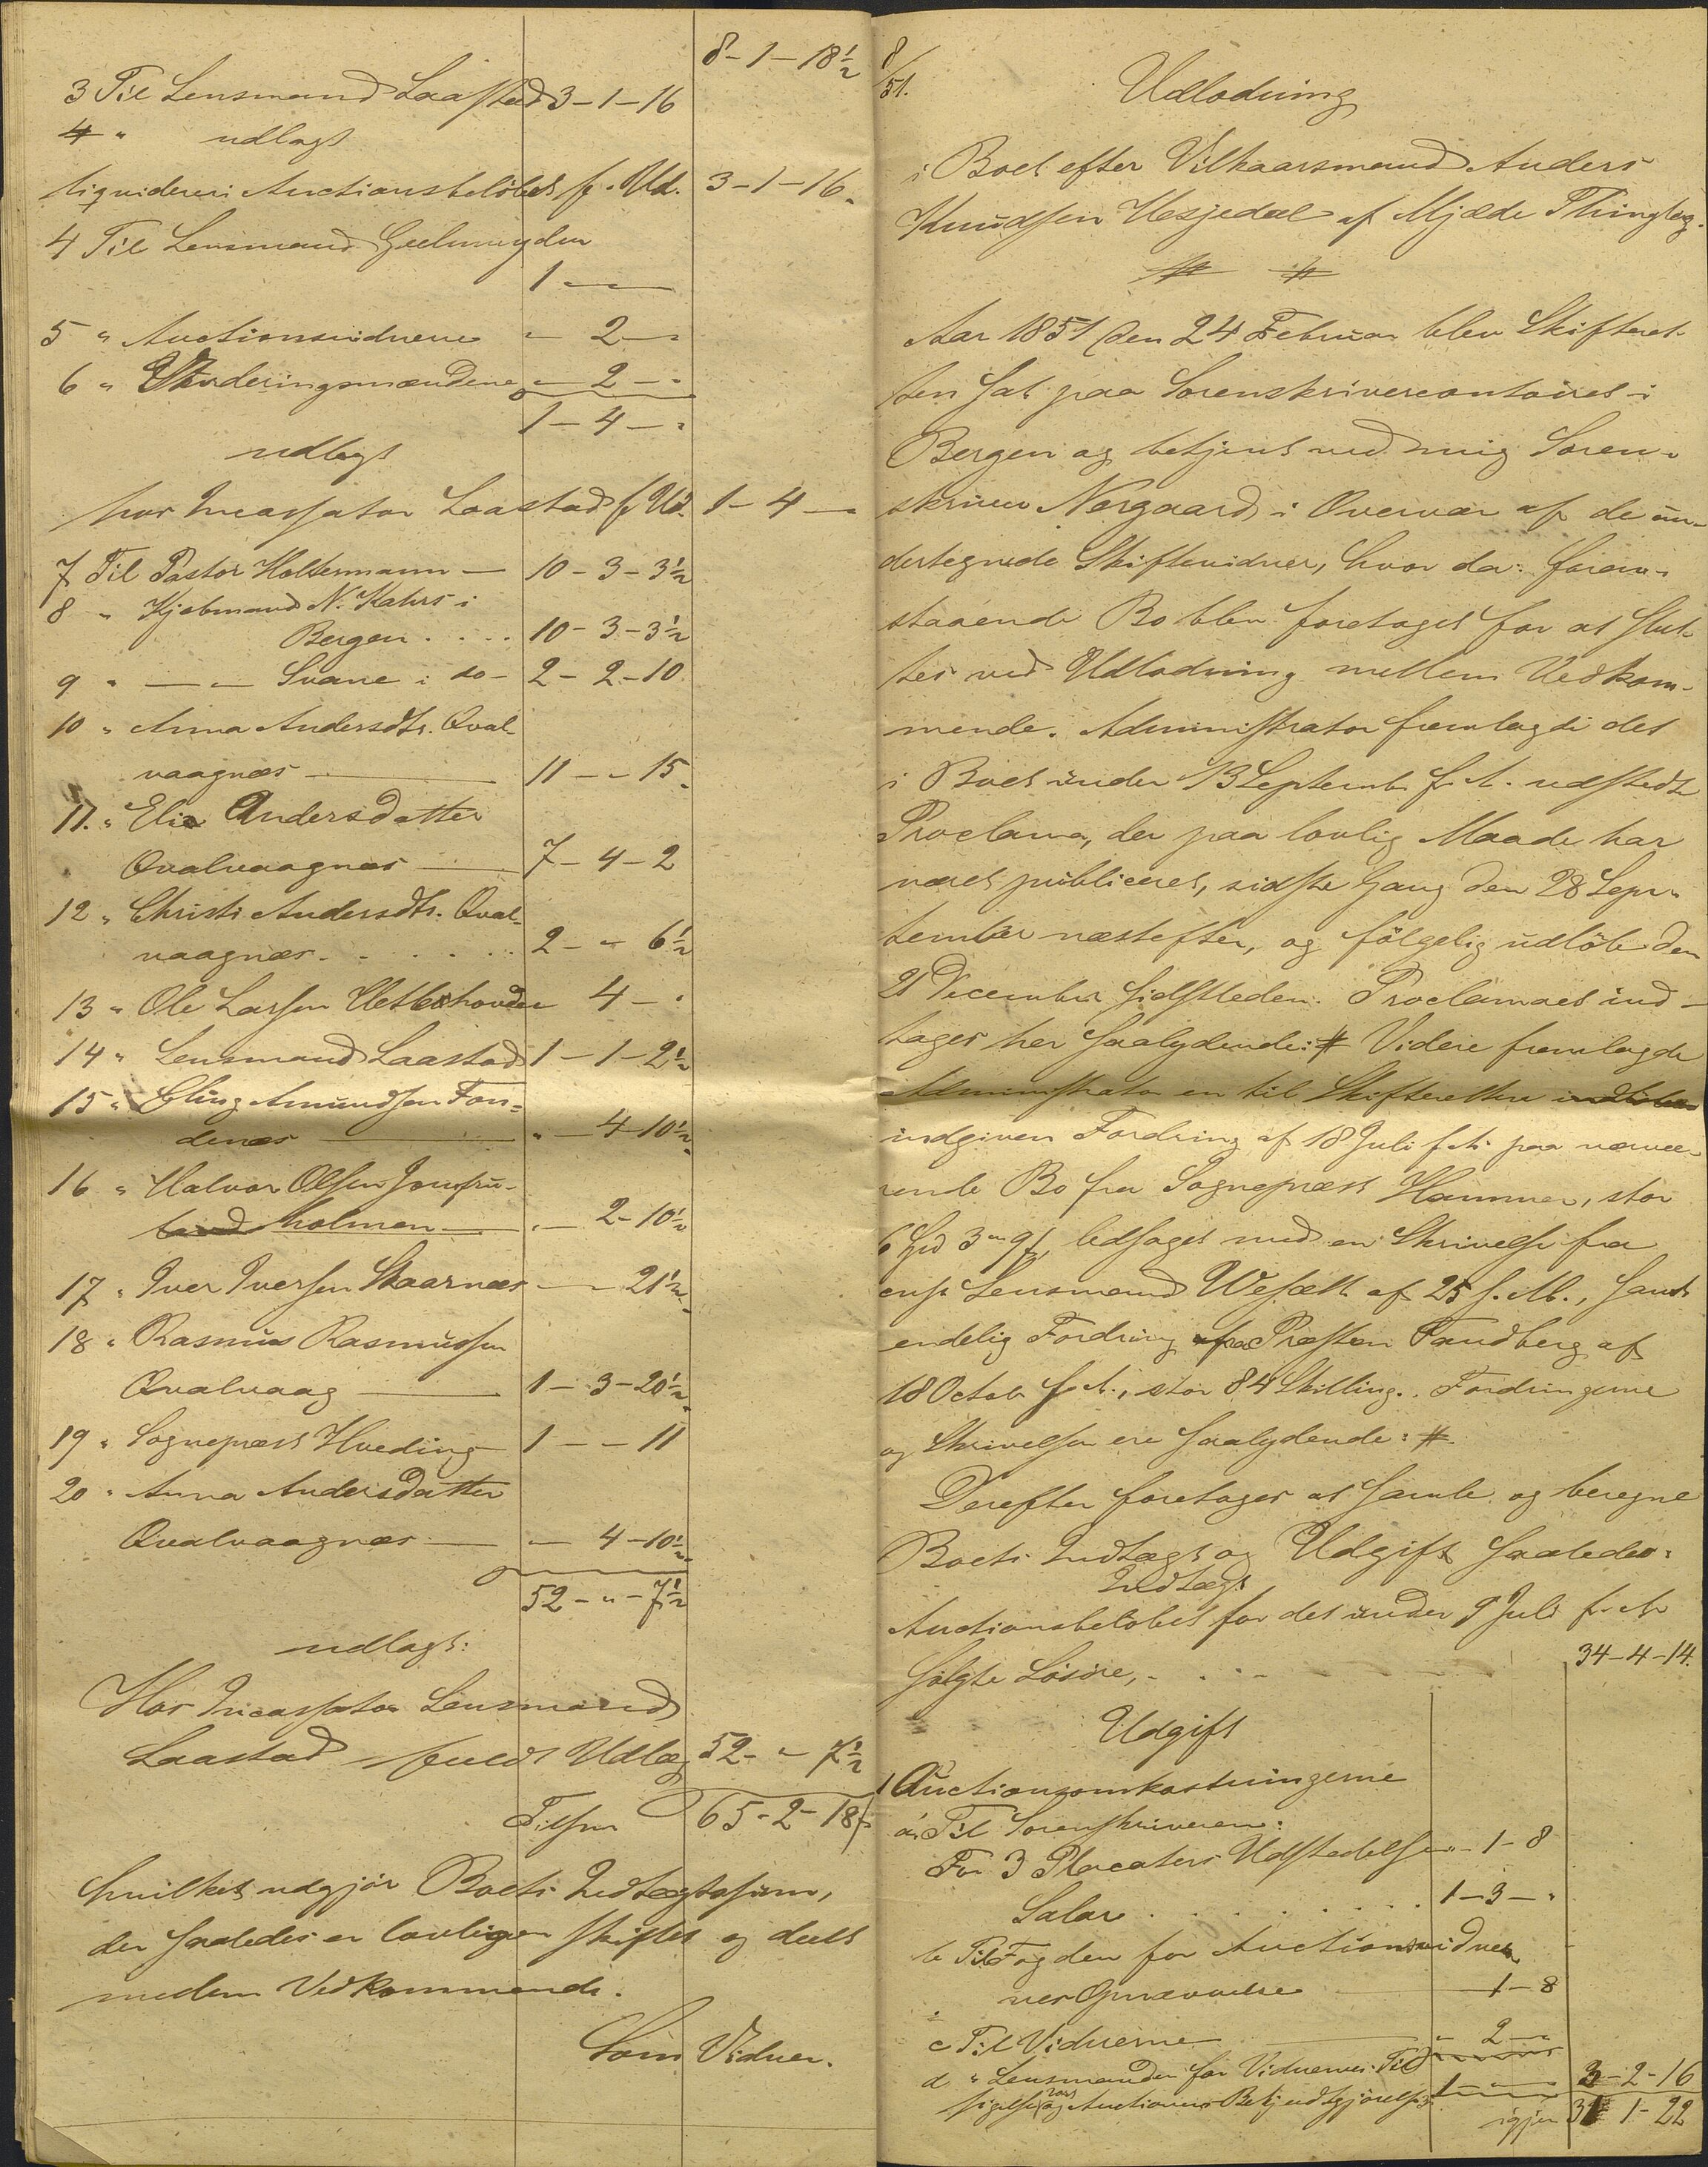 8-1-18½
3 Til Lensmand Laastad 3-1-16
4 " udlagt
liqvideres i Auctionsbeløbet f. Ud. 3-1-16.
4 Til Lensmand Geelmuyden
1 -
5 " Auctionsvidnerne " 2 -
6 " Vurderingsmændene " 2 - "
1 - 4 - "
udlagt
hos Incassator Laastad f. Ud. 1 - 4 -
7 Til Pastor Holtermann — 10 - 3 - 3½
8 " Kjøbmand N. Kahrs i
Bergen .... 10 - 3 - 3½
9 " — " — Svane i do - 2 - 2 - 10
10 " Anna Andersdtr. Qval-
vaagnæs — 11 - " 15
11. " Elie Andersdatter
Qvalvaagnæs — 7 - 4 - 2
12 " Christi Andersdtr. Qval-
vaagnæs . . . . . . 2 - " 6½
13 " Ole Larsen 4 - "
14 " Lensmand Laastad 1 - 1 - 2½
15 " Elling Amundsen Fon-
denæs — " - 4 - 10½
16 " Halvor Olsen Jomfru-
land holmen — " - 2 - 10½
17 " Iver Iversen Skaarnæs — " 21½
18 " Rasmus Rasmussen
Qvalvaag — 1 - 3 - 20½
19 " Sognepræst Hveding 1 - " 11
20 " Anna Andersdatter
Qvalvaagnæs — " 4 - 10½
52 - " - 7½
udlagt:
Hos Incassator Lensmand
Laastad fuldt Udlæg 52 - " 7½
Tilsm 65 - 2 - 18
hvilket udgjør Boets Indtægtssum,
der saaledes er lovligen skiftet og deelt
mellem Vedkommende.
Som Vidner.
8/51. Udlodning
i Boet efter Vilkaarsmand Anders
Knudsen Hesjedal af Mjelde Thinglag.
# #
Aar 1851 den 24 Februar blev Skifteret-
ten sat paa Sorenskrivercontoiret i
Bergen og betjent ved mig Soren-
skriver Norgaard i Overvær af de un-
dertegnede Skiftevidner, hvor da: foran-
staaende Bo blev foretaget for at slut-
tes ved Udlodning mellem Vedkom-
mende. Administrator fremlagde det
i Boet under 13 Septemb. f. A. udstedte
Proclama, der paa lovlig Maade har
været publiceret, sidste Gang den 28 Sep-
tember næstefter, og følgelig udløb den
21 December sidstleden. Proclamaet ind-
tages her saalydende: # Videre fremlagde
Administrator en til Skifteretten
indgiven Fordring af 18 Juli f. A. paa nærvæ-
rende Bo fra Sognepræst Hammer, stor
6 Spd 3 " 9 ß, ledsaget med en Skrivelse fra
Lensmand af 25 s. M., samt
endelig Fordring fra Præsten Sandberg af
18 Octob f. A., stor 84 Skilling. Fordringerne
og Skrivelsen ere saalydende: #.
Derefter foretoges at samle og beregne
Boets Indtægt og Udgift saaledes:
Indtægt
Auctionsbeløbet for det under 9 Juli f. A.
solgte Løsøre, - . . . 34-4-14.
Udgift
1 Auctionsomkostningerne
a, Til Sorenskriveren:
For 3 Placaters Udstedelse " - 1 - 8
Salær . . . . . . . . . 1 - 3 - "
b Til Fogden for Auctionsvidner
nes Opnævnelse — 1 - 8
c Til Vidnerne — " 2 - "
d " Lensmanden for Vidnernes Til-
sigelse og Auctionens Bekjendtgjørelse 1 - 3-2-16
igjen 31 1-22